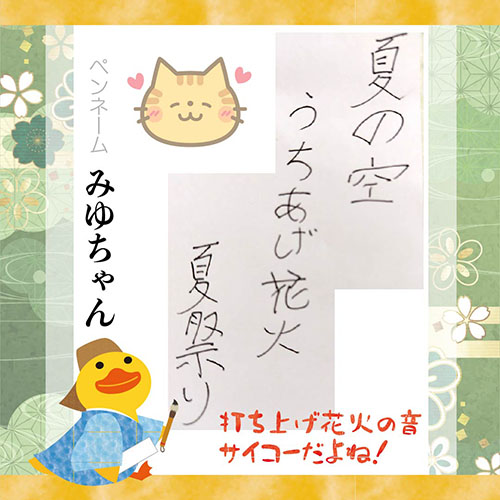 夏の空
うちあげ花火
夏祭り
ペンネーム
みゆちゃん
打ち上げ花火の音
サイコーだよね!